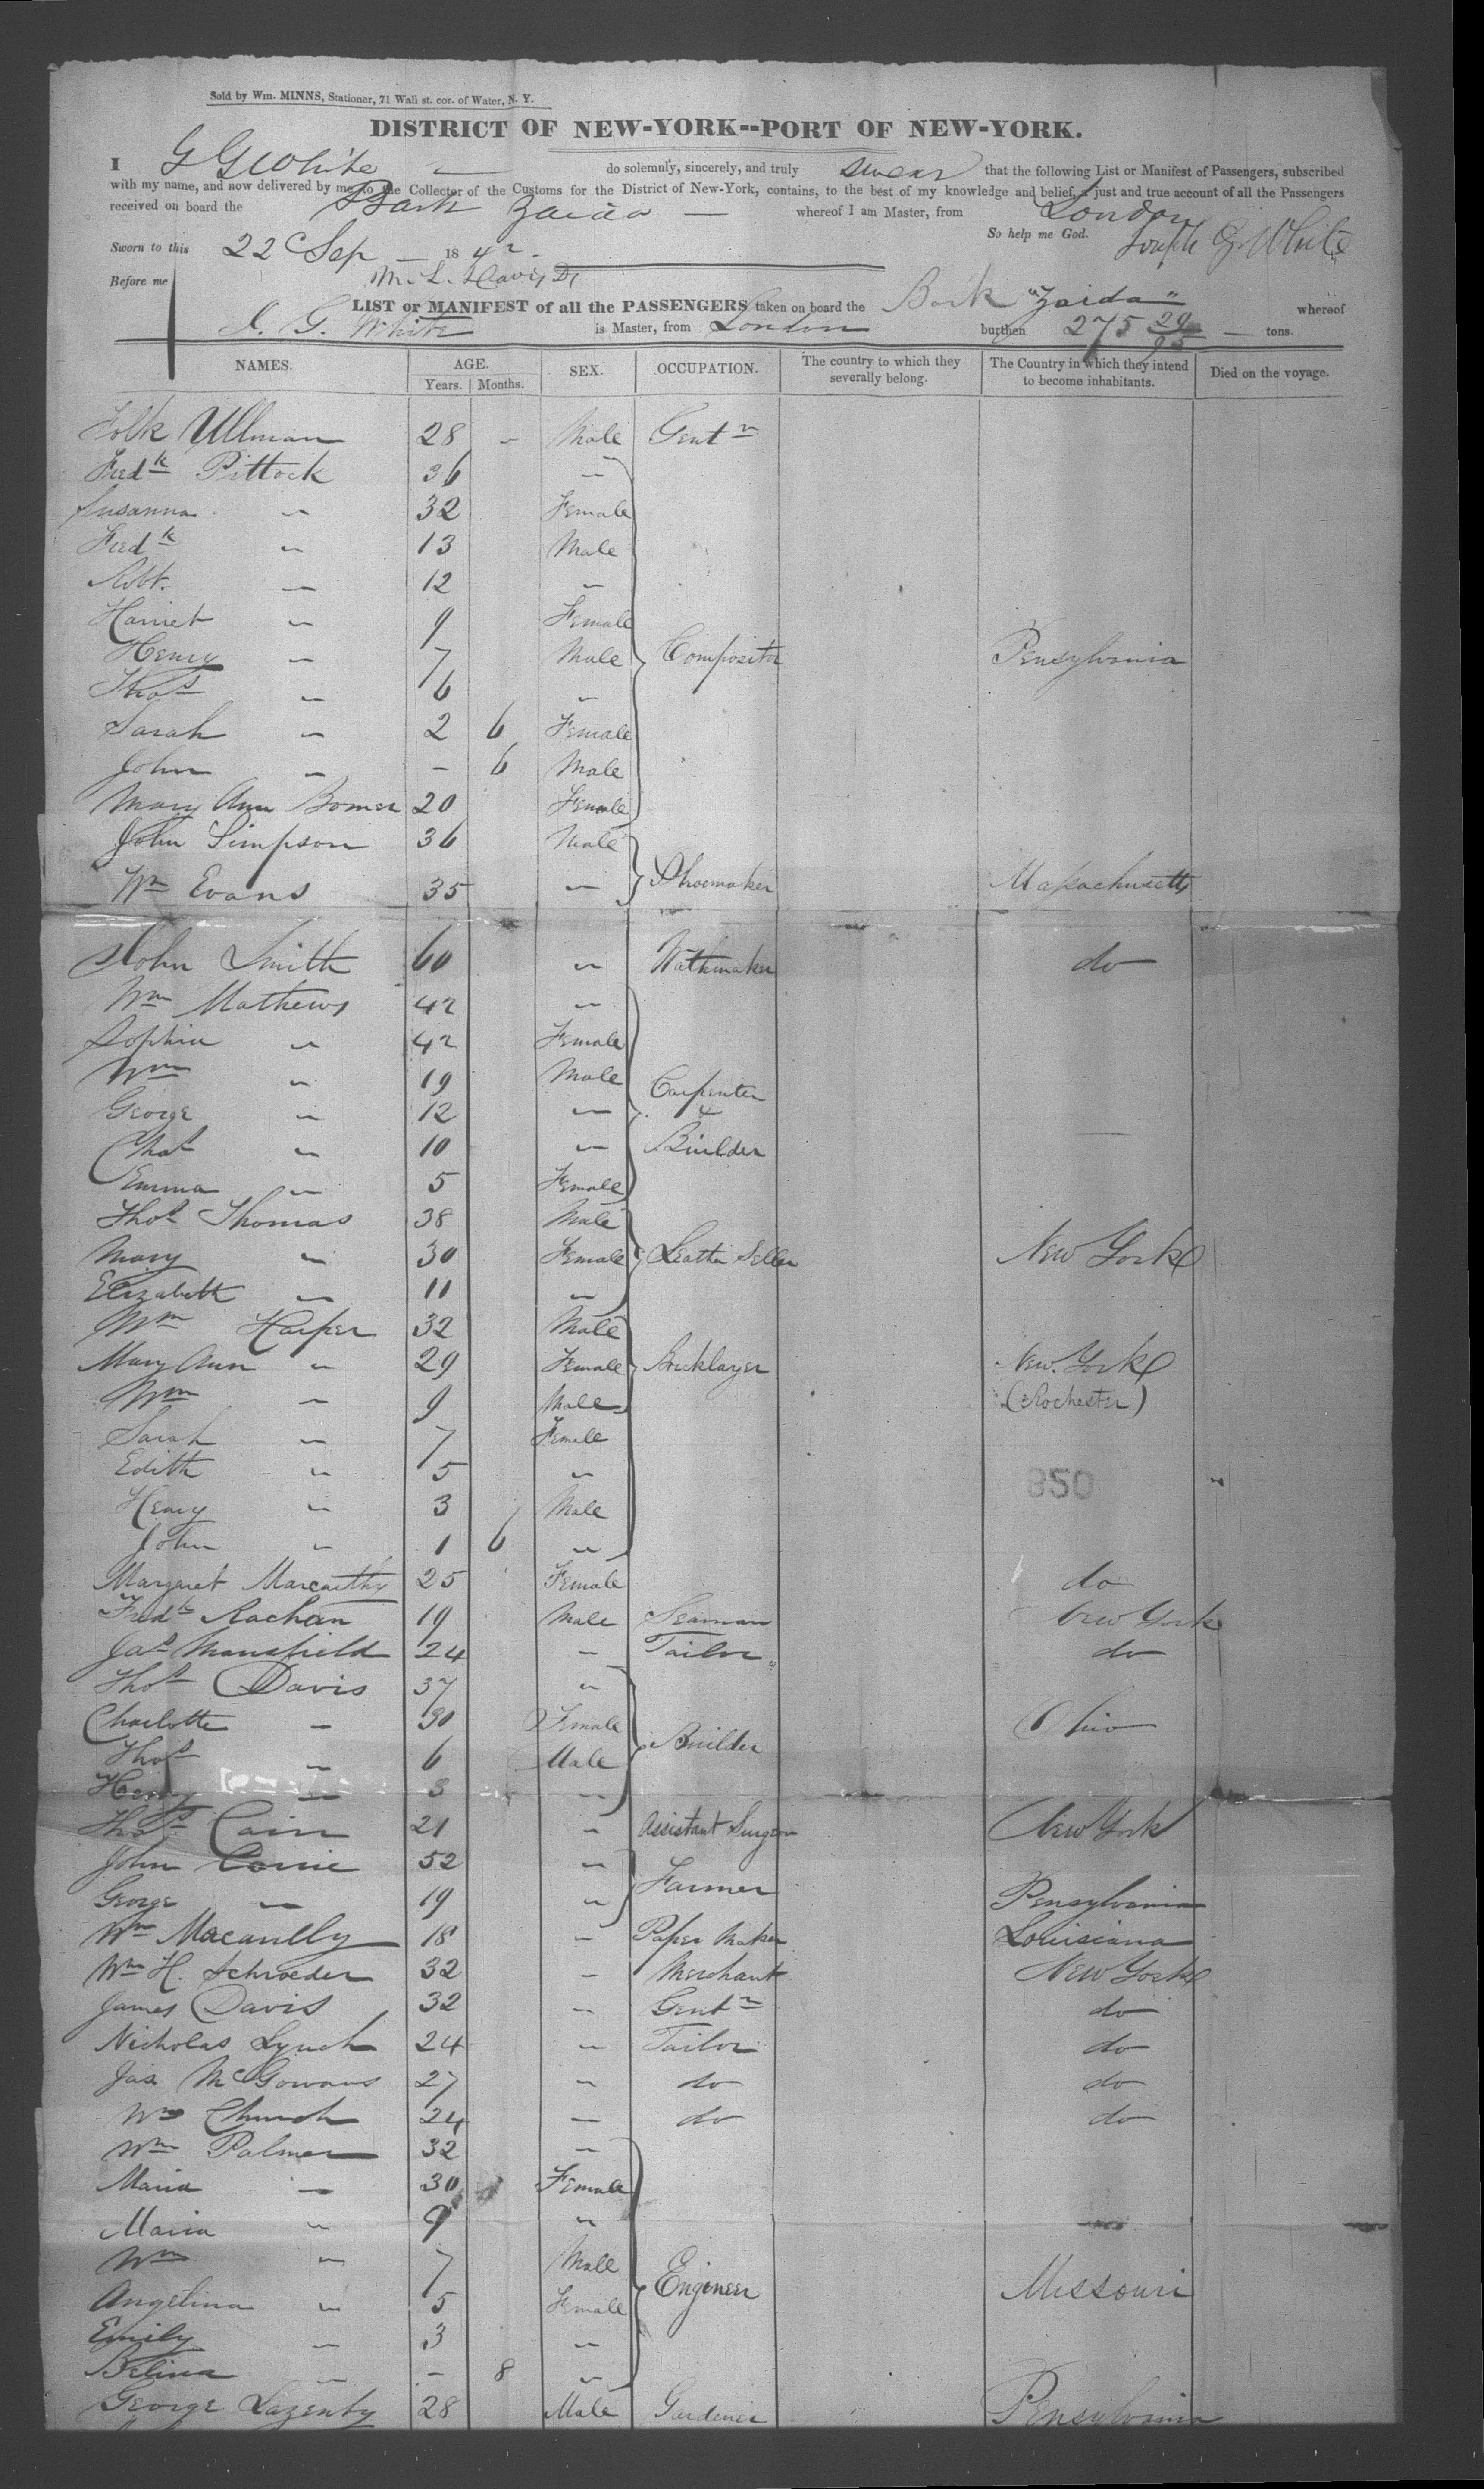 Sold by Wm. MINNS, Stationer, 71 Wall st. cor. of Water, N. Y.
DISTRICT OF NEW-YORK--PORT OF NEW-YORK.
I G G White do solemnly, sincerely, and truly swear that the following List or Manifest of Passengers, subscribed
with my name, and now delivered by me to the Collector of the Customs for the District of New-York, contains, to the best of my knowledge and belief, a just and true account of all the Passengers
received on board the Bark Zaida — whereof I am Master, from London
So help me God. Joseph G White
Sworn to this 22 Sep — 1842.
Before me M. L. Davis
LIST or MANIFEST of all the PASSENGERS taken on board the Bark "Zaida" whereof
J. G. White is Master, from London burthen 275 29/95 — tons.
NAMES. AGE. Years. Months. SEX. OCCUPATION. The country to which they severally belong. The Country in which they intend to become inhabitants. Died on the voyage.
Ullman 28 - Male Gentn
Fredk Pittock 36 "
Susanna " 32 Female
Fredk " 13 Male
Robt. — 12 "
Harriet " 9 Female
Henry " 7 Male Compositor Pensylvania
Thos " 6 "
Sarah " 2 6 Female
John " - 6 Male
Mary Ann Bomer 20 Female
John Simpson 36 Male
Wm Evans 35 " Shoemaker Massachusetts
John Smith 60 " Wathmaker do
Wm Mathews 42 "
Sophia " 42 Female
Wm " 19 Male Carpenter
George " 12 " &
Chas " 10 " Builder
Emma " 5 Female
Thos Thomas 38 Male
Mary " 30 Female Leather Seller New York
Elizabeth " 11 "
Wm Harper 32 Male
Mary Ann " 29 Female Bricklayer New York
Wm " 9 Male (Rochester)
Sarah " 7 Female
Edith " 5 "
850
Henry " 3 Male
John " 1 6 "
Margaret Marcarthy 25 Female do
Fredk Rachan 19 Male Seaman New York
Jas Mansfield 24 " Tailor do
Thos Davis 37 "
Charlotte — 30 Female Ohio
Thos " 6 Male Builder
Henry — 3 "
Thos Cain 21 " Assistant Surgeon New York
John Corrie 52 "
George — 19 " Farmer Pensylvania
Wm Macanlly 18 " Paper Maker Louisiana
Wm H. Schroeder 32 " Merchant New York
James Davis 32 " Gentn do
Nicholas Lynch 24 " Tailor do
Jas McGowans 27 " do do
Wm Church 24 — do do
Wm Palmer 32 "
Maria — 30 Female
Maria " 9 "
Wm " 7 Male
Angelina " 5 Female Engineer Missouri
Emily " 3 "
Belina — - 8 "
George Lazenby 28 Male Gardener Pensylvania